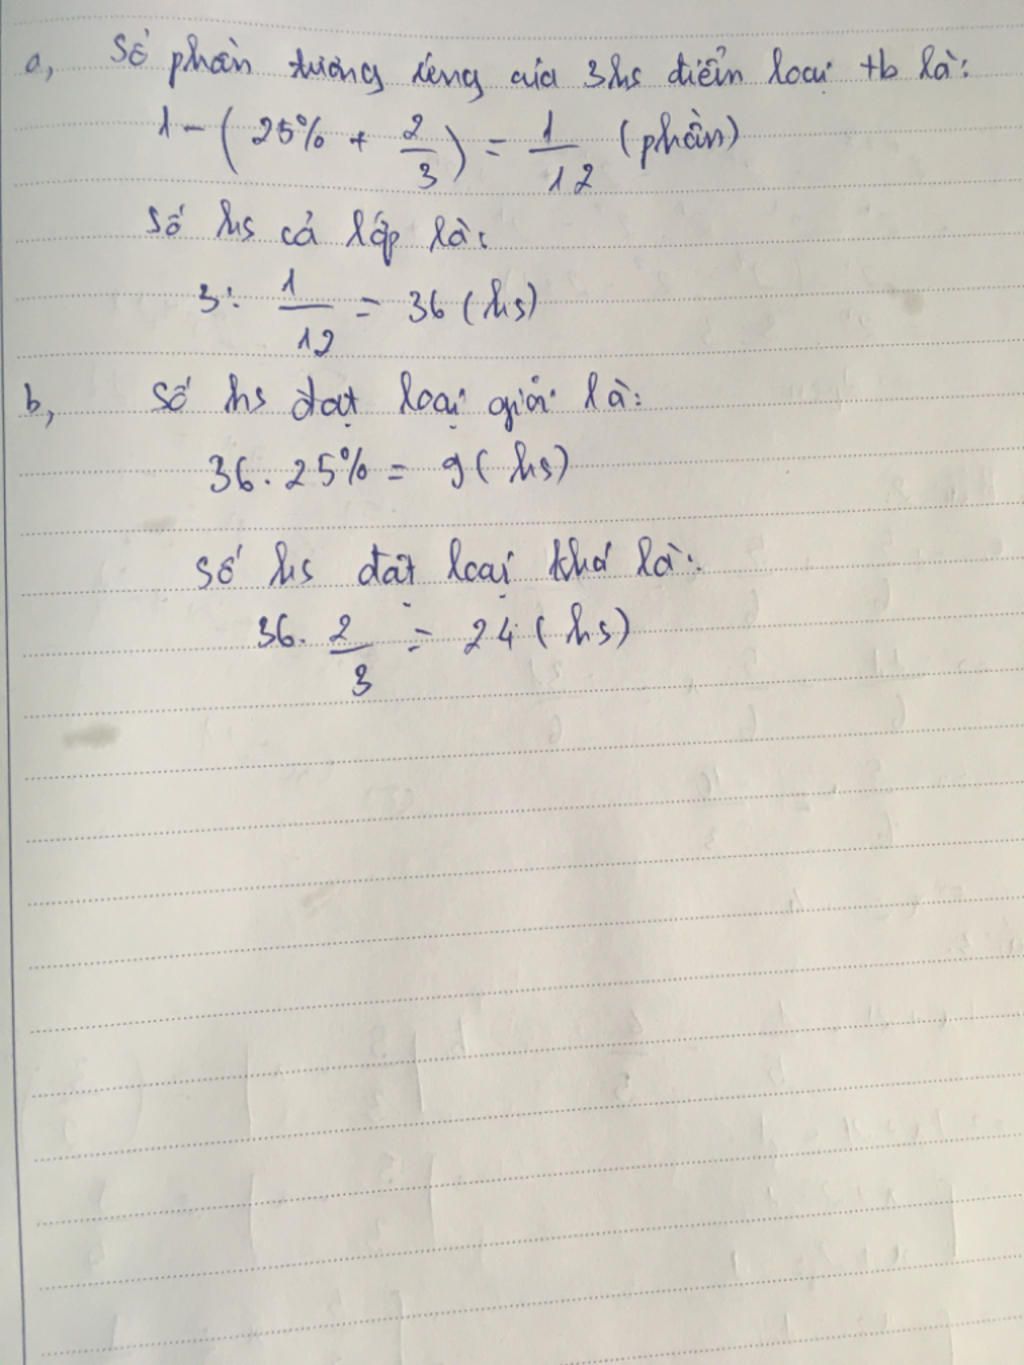 a, Số phần tương ứng của 3hs điểm loại tb là:
1 - ( 25% + 2/3 ) = 1/12 (phần)
Số hs cả lớp là:
3 : 1/12 = 36 (hs)
b, Số hs đạt loại giỏi là:
36 . 25% = 9 ( hs)
Số hs đạt loại khá là:
36 . 2/3 = 24 ( hs)